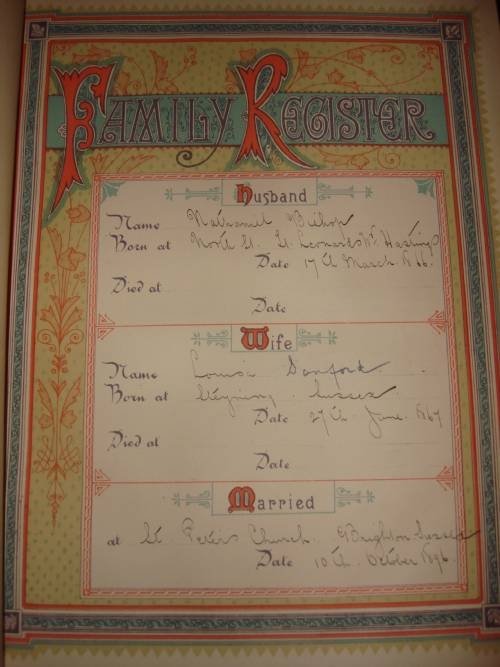 Family Register
Husband
Name Nathaniel Bishop
Born at North St. St. Leonards Hastings
Date 17th March 1866.
Died at
Date
Wife
Name Louisa Sanford.
Born at Steyning Sussex
Date 27th June 1867
Died at
Date
Married
at St. Peters Church. Brighton. Sussex
Date 10th. October 1896.